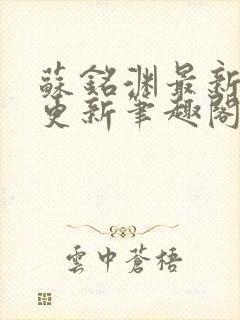 蘇銘淵最新
更新筆趣閣
雲中蒼梧